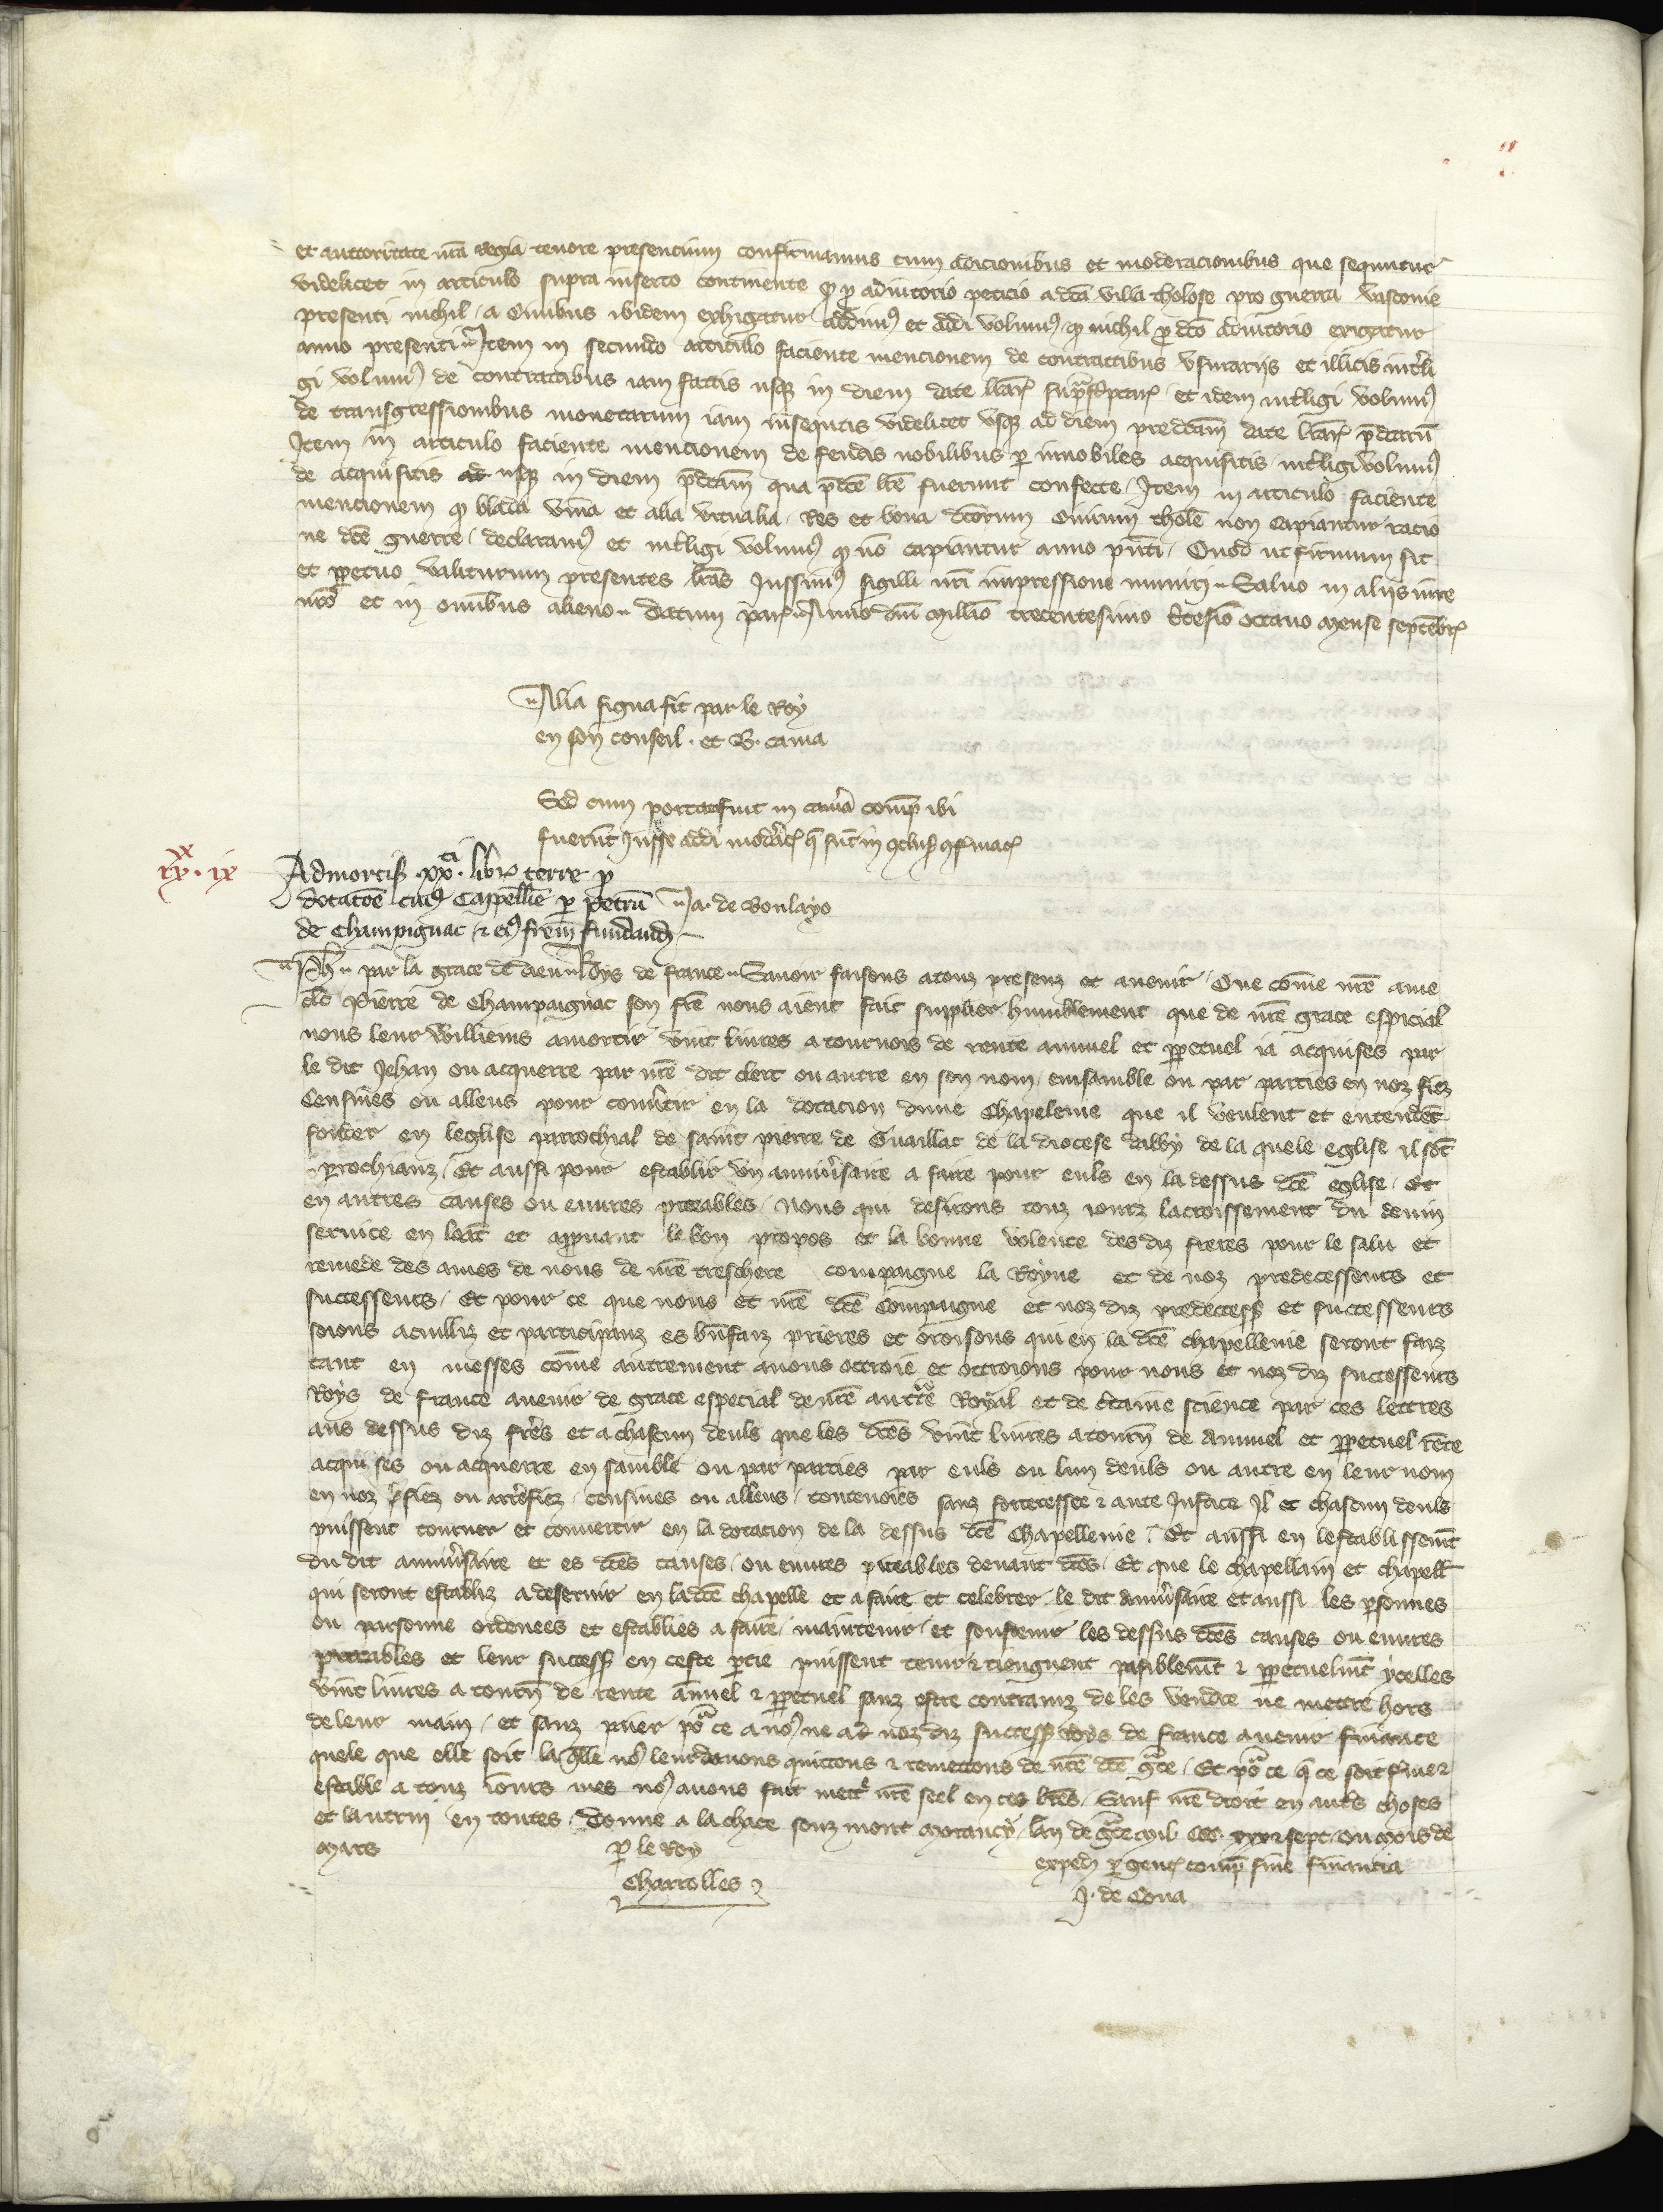 et auctoritate nrā regia tenore presencium confirmamus cum adicionibus et moderacionibus que sequntur
videlicet in articulo supra inserto continente q̄ p adiutorio peticio a dcā villa tholose pro guerra vasconie
presenti nichil a civibus ibidem exhigatur addim9 et addi volum9 q̄ nichil p dcō adiutorio exigatur
anno presenti Item in secundo articulo faciente mencionem de contractibus usurariis et illicis intelli
gi volum9 de contractibus iam factis usq; in diem date lrār suprascptar et idem intlligi volum9
de transgressionibus monetarum iam insequtis videlicet usq; ad diem predcām date lrār pdctarū
Item in articulo faciente mencionem de feudis nobilibus p innobiles acquisitis intelligi volum9
de acquisitis ad usq; in diem pdctām qua pdcē lrē fuerunt confecte Item in articulo faciente
mencionem q̄ blada vina et alia victualia res et bona dcōrum civium tholē non capiantur racio
ne dcē guerre declaram9 et intlligi volum9 q̄ nō capiantur anno pn̄ti Quod ut firmum sit
et ppetuo valiturum presentes lrās Jussim9 sigilli nrī impressione muniri Salvo in aliis iure
nrō et in omībus alieno datum par Anno dnī millīo trecentesimo tcesīo octavo mense septēbr
Alia signa sic par le Roy
en son conseil . et B. cama
Sed cum portat fuit in camā comp ibi
fuerūt Jusse addi modāt q̄ sūt in qclus qfirmac
xx
ix
Admortis xx libr terre p
dotacōe cui9 Cappellīe p petrū
de Champignac et ei9 frem fundand
Ja. de Boulayo
Ph par la grace de dieu Roys de france Savoir faisons a touz presenz et avenir Que cōme nrē ame
clc Pierre de Champaignac son fre nous aient fait supplier humblement que de nrē grace especial
nous leur vuilliens amortir vint livres a tournois de rente annuel et ppetuel ia acquises par
le dit Jehan ou acquerre par nrē dit clerc ou autre en son nom ensamble ou par parties en noz fiez
Censives ou alleus pour convtir en la dotacion dune Chapelenie que il veulent et entendēt
fonder en leglise parrochial de saint pierre de Guaillac de la diocese dalby de la quele eglise il sōt
prochianz Et aussi pour establir un annivsaire a faire pour euls en la dessus dcē eglise Et
en autres causes ou euvres piteables Nous qui desirons touz iourz lacroissement du devin
service en loāt et appvant le bon propos et la bonne volente des diz freres pour le salu et
remede des ames de nous de nrē treschere compaigne la Royne et de noz predecesseurs et
successeurs Et pour ce que nous et nrē dcē Compaigne et noz diz predecess et successeurs
soions acuilliz et participanz es bnfaiz prieres et oroisons qui en la dcē chapellenie seront faiz
tant en messes cōme autrement avons octroie et octroions pour nous et noz diz successeurs
Roys de france avenir de grace especial de nrē auctte Royal et de ctaine science par ces lettres
aus dessus diz freres et a chascun deuls que les dcēs vint livres a tourn de annuel et ppetuel rēte
acquises ou acquerre ensamble ou par parties par euls ou lun deuls ou autre en leur nom
en noz fiez ou arrefiez censives ou alleus contenoirs sanz forteresse et aute Justice Il et chascun deuls
puissent tourner et convertir en la dotacion de la dessus dcē Chapellenie Et aussi en lestablissemt
du dit annivsaire et es dcēs causes ou euvres piteables devant dcēs Et que le chapellain et chapell
qui seront establiz a deservir en la dcē chapelle et a faire et celebrer le dit annivsaire et aussi les psonnes
ou parsonne ordenees et establies a faire maintenir et soustenir les dessus dcēs causes ou euvres
piteables et leur success en ceste ptie puissent tenir et tienguent paisiblemt et ppetuelmt ycelles
vint livres a tourn de rente annuel et ppetuel sanz estre contrainz de les vendre ne mettre hors
de leur main et sanz paier por ce a no9 ne a noz diz success Roys de france avenir finance
quele que elle soit laqlle no9 leur donons quittons et remettons de nrē dcē gce Et por ce q̄ ce soit fme et
estable a touz iours mes no9 avons fait mett nrē seel en ces ltres Sauf nrē droit en autrs choses
et lautrui en toutes Donne a la chace souz mont morancy lan de gce mil CCC xxx et sept ou mois de
Mars
p le Roy
Charrolles
exped p gentes comp sine financia
J. de Cona